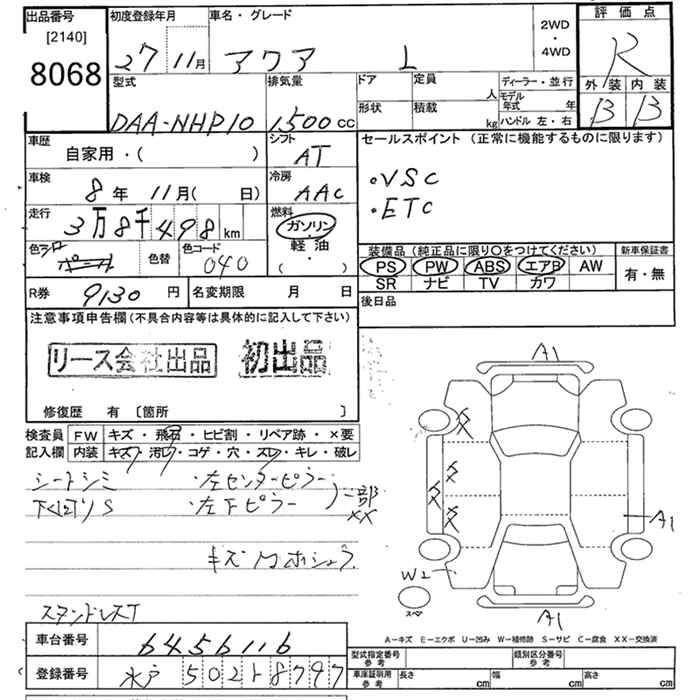 出品番号
[2140]
8068
初度登録年月
27 11月
車名・グレード
アクア L
2WD
・
4WD
評価点
R
外装 内装
B B
型式
DAA-NHP10
排気量
1,500 CC
ドア
定員 人
形状
積載 kg
ディーラー・並行
モデル年式 年
ハンドル 左・右
車歴
自家用・( )
シフト
AT
車検
8年 11月( 日)
冷房
AAC
走行
3万8千498km
燃料
ガソリン
軽油
( ・ )
色
色替
色コード
040
R券 9130円
名変期限 月 日
セールスポイント (正常に機能するものに限ります)
・VSC
・ETC
装備品 (純正品に限り○をつけてください)
PS PW ABS エアB AW
SR ナビ TV カワ
新車保証書
有・無
後日品
注意事項申告欄(不具合内容等は具体的に記入して下さい)
リース会社出品 初出品
修復歴 有 〔箇所 〕
検査員記入欄
FW キズ・飛石・ヒビ割・リペア跡・×要
内装 キズ・汚レ・コゲ・穴・スレ・キレ・破レ
シートシミ ・左センターピラー
下廻りS ・左Fピラー 一部XX
キズ
A1
A1
W2
A1
スペ
A-キズ E-エクボ U-凹み W-補修跡 S-サビ C-腐食 XX-交換済
車台番号 6456116
登録番号 水戸 502 ト 8797
型式指定番号 参考
類別区分番号 参考
車庫証明用 参考
長さ cm 幅 cm 高さ cm